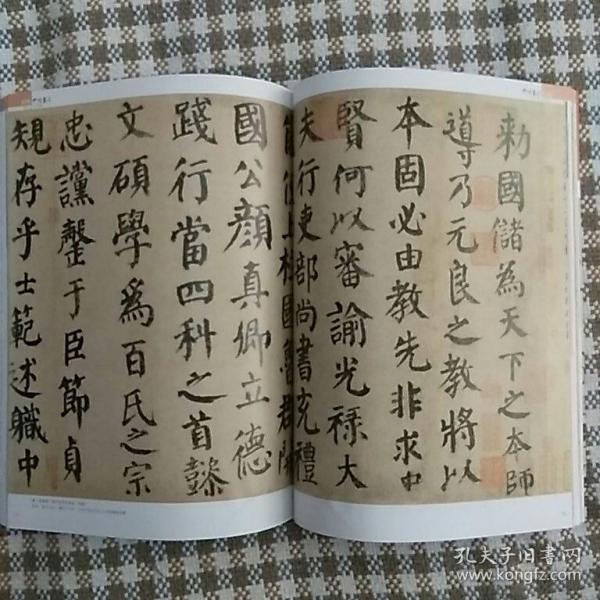 敕國儲為天下之本師
導乃元良之教將以
本固必由教先非求中
賢何以審諭光祿大
夫行吏部尚書充禮
儀使上柱國魯郡開
國公顏真卿立德
踐行當四科之首懿
文碩學為百氏之宗
忠讜罄于臣節貞
規存乎士範述職中
孔夫子旧书网
www.kongfz.com